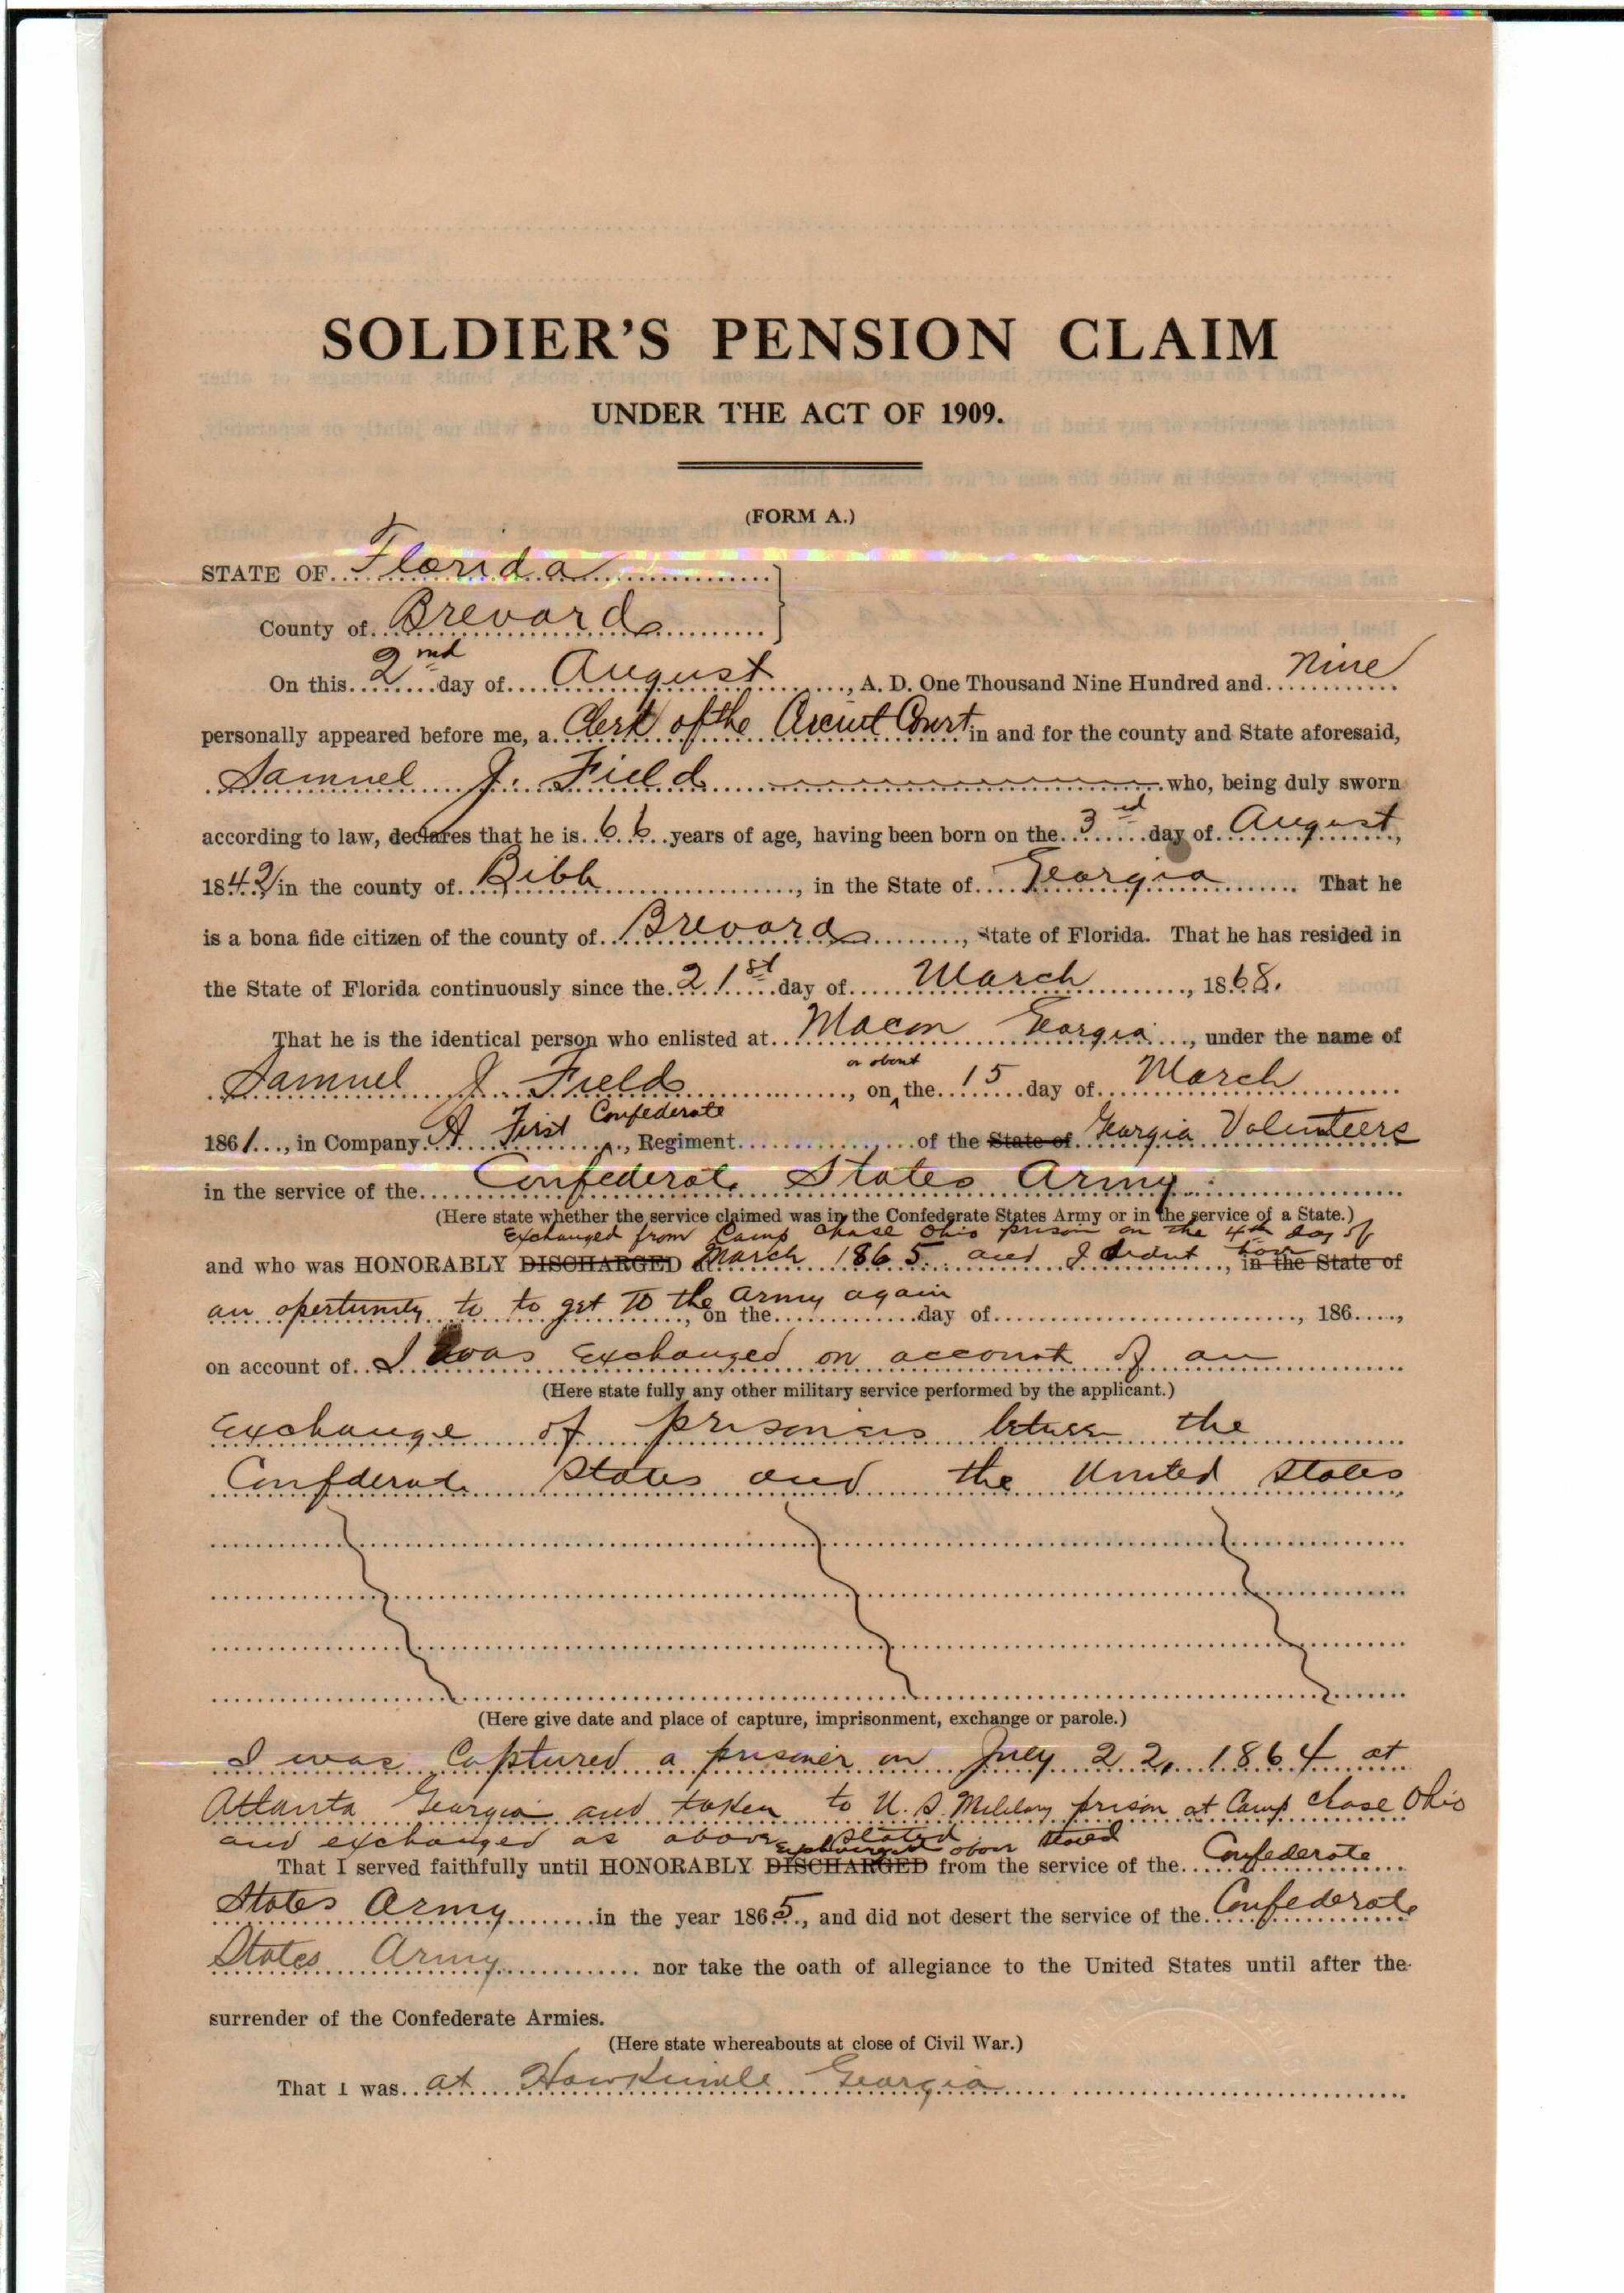 SOLDIER'S PENSION CLAIM
UNDER THE ACT OF 1909.
(FORM A.)
STATE OF Florida
County of Brevard
On this 2nd day of August, A. D. One Thousand Nine Hundred and Nine
personally appeared before me, a Clerk of the Circuit Court in and for the county and State aforesaid,
Samuel J. Field who, being duly sworn
according to law, declares that he is 66 years of age, having been born on the 3rd day of August,
1842 in the county of Bibb, in the State of Georgia. That he
is a bona fide citizen of the county of Brevard, State of Florida. That he has resided in
the State of Florida continuously since the 21st day of March, 1868.
That he is the identical person who enlisted at Macon Georgia, under the name of
Samuel J. Field, on or about the 15 day of March
1861, in Company A First Confederate, Regiment of the State of Georgia Volunteers
in the service of the Confederate States Army
(Here state whether the service claimed was in the Confederate States Army or in the service of a State.)
Exchanged from Camp Chase Ohio prison on the 4th day of
and who was HONORABLY DISCHARGED March 1865 and I didnt have, in the State of
an opertunity to to get to the Army again, on the day of, 186,
on account of I was Exchanged on account of an
(Here state fully any other military service performed by the applicant.)
Exchange of prisoners between the
Confderate States and the United States
(Here give date and place of capture, imprisonment, exchange or parole.)
I was Captured a prisoner on July 22, 1864 at
Atlanta Georgia and taken to U.S. Military prison at Camp Chase Ohio
and exchanged as above stated
exchanged above stated
That I served faithfully until HONORABLY DISCHARGED from the service of the Confederate
States Army in the year 1865, and did not desert the service of the Confederate
States Army nor take the oath of allegiance to the United States until after the
surrender of the Confederate Armies.
(Here state whereabouts at close of Civil War.)
That I was at Hawkinsville Georgia